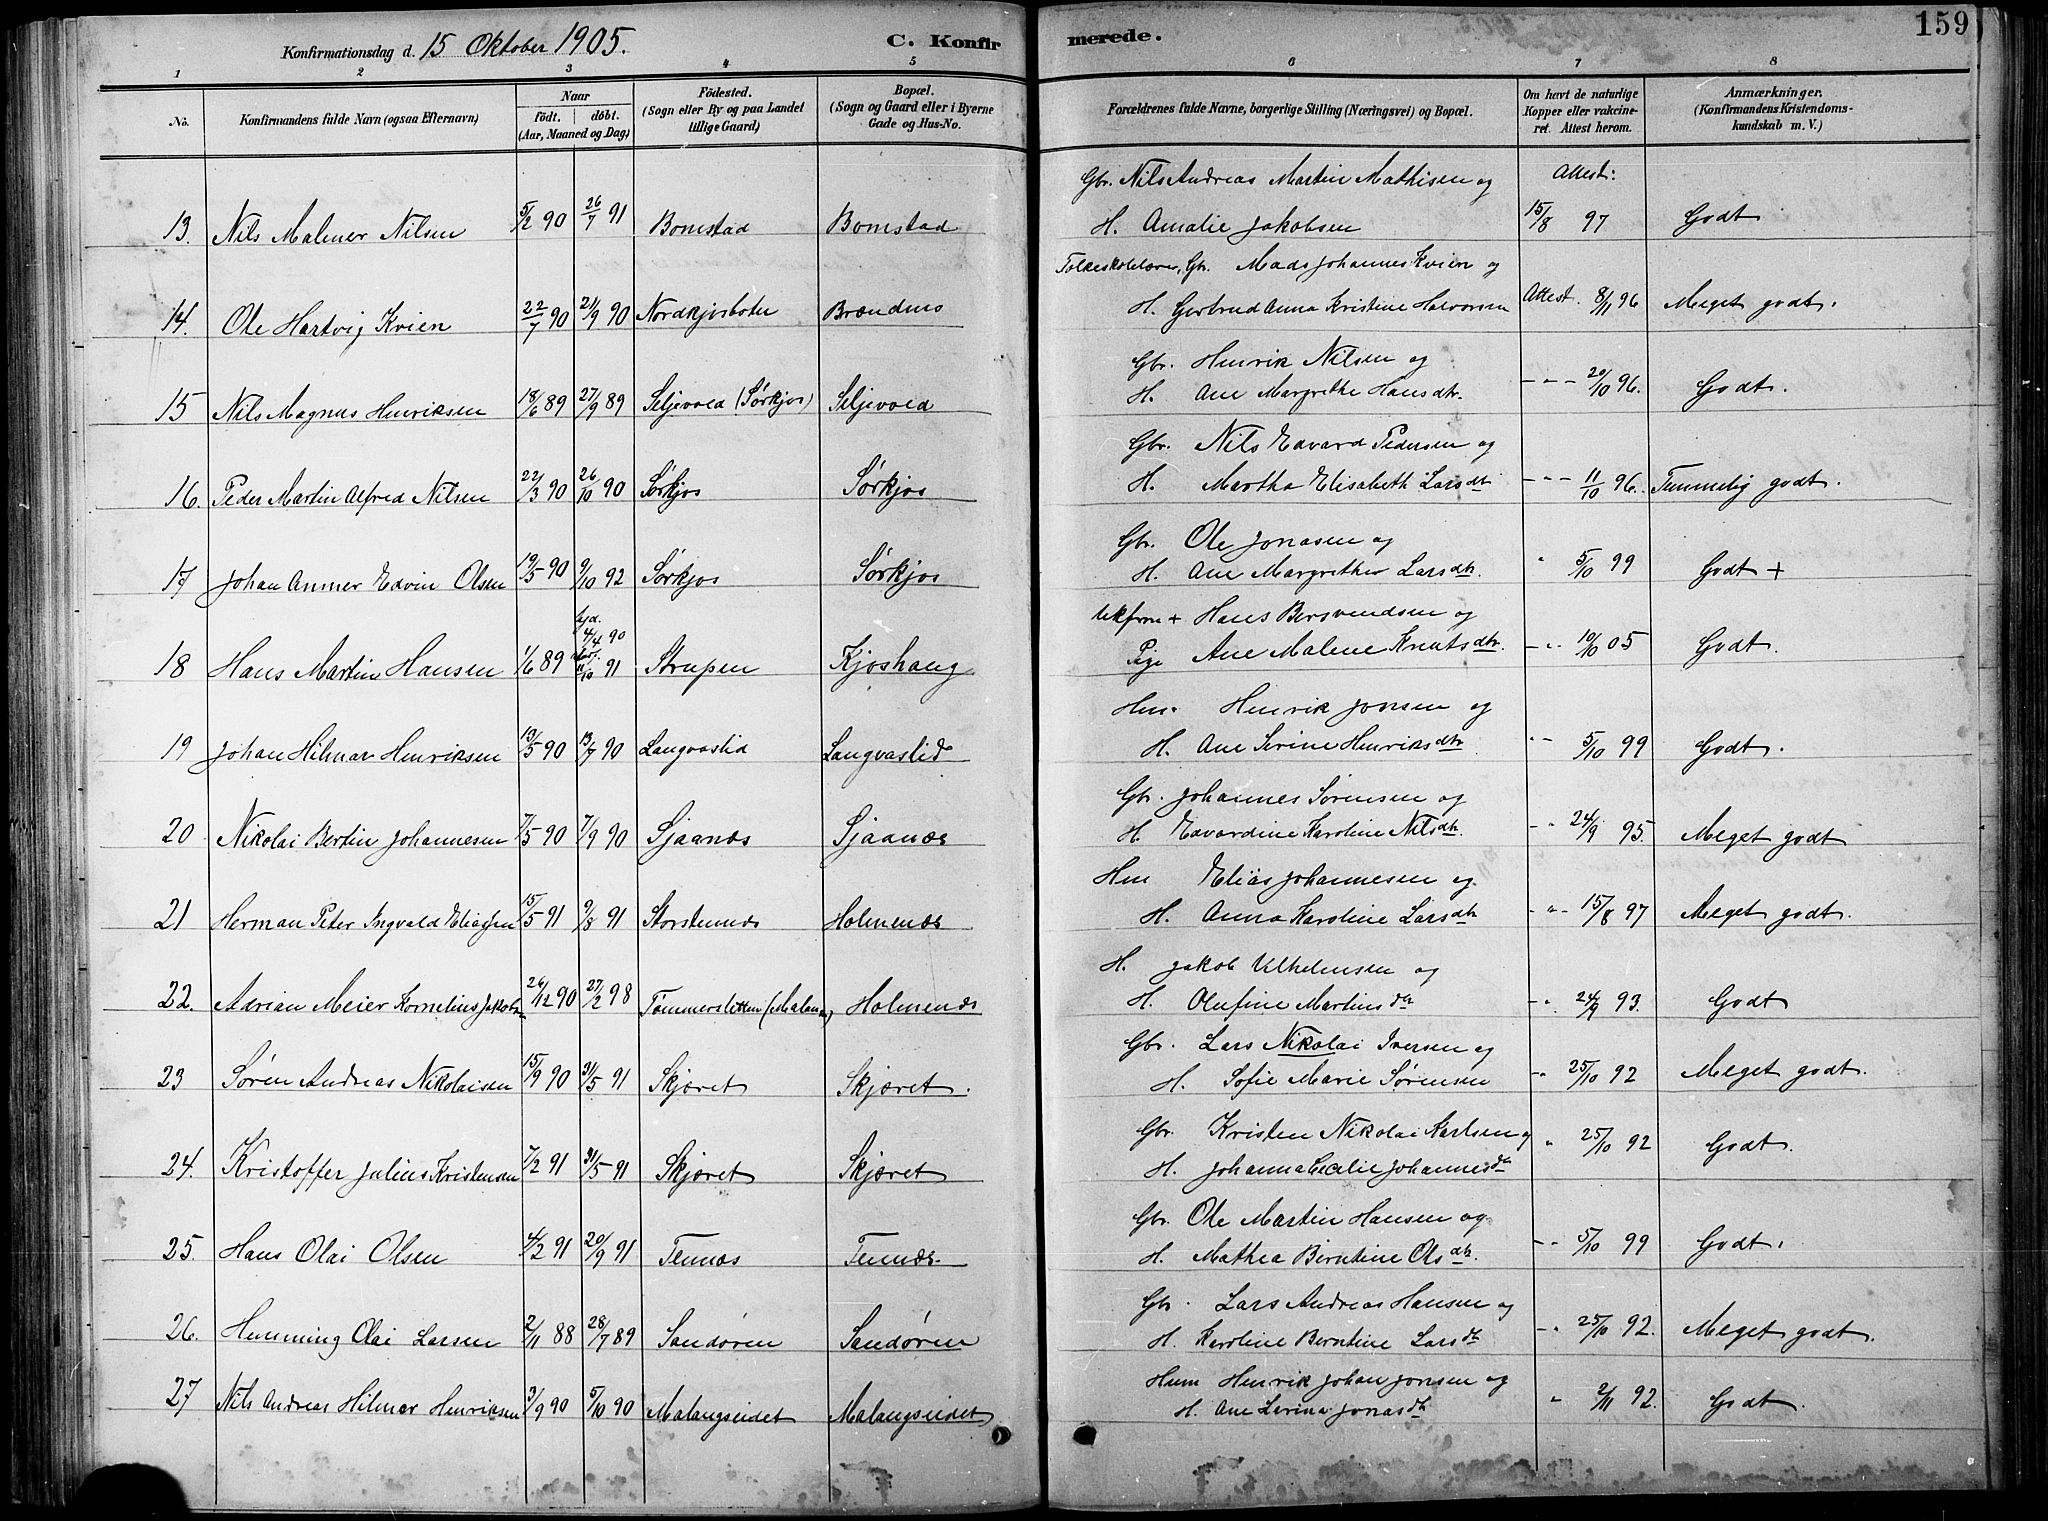 159
Konfirmationsdag d. 15 Oktober 1905. C. Konfir merede.
1 2 3 4 5 6 7 8
No. Konfirmandens fulde Navn (ogsaa Efternavn) Naar født. døbt. (Aar, Maaned og Dag) Födested. (Sogn eller By og paa Landet tillige Gaard) Bopæl. (Sogn og Gaard eller i Byerne Gade og Hus-No. Forældrenes fulde Navne, borgerlige Stilling (Næringsvei) og Bopæl. Om havt de naturlige Kopper eller vakcineret. Attest herom. Anmærkninger. (Konfirmandens Kristendomskundskab m. V.)
Gbr. Nils Andreas Martin Mathisen og Attest:
13. Nils Malmer Nilsen 5/2 90 26/7 91 Bomstad Bomstad H. Amalie Jakobsen 15/8 97 Godt
Folkeskolelærer, Gbr. Mads Johannes Kvien og
14. Ole Hartvig Kvien 22/7 90 21/9 90 Nordkjosboten Brændnes H. Gertrud Anna Kristine Halvorsen Attest. 8/11 96 Meget godt.
Gbr. Henrik Nilsen og
15 Nils Magnus Henriksen 18/6 89 27/9 89 Seljevold (Sørkjos) Seljevold H. Ane Margrethe Hansdtr. - " - 20/10 96. Godt.
Gbr. Nils Edvard Pedersen og
16. Peder Martin Alfred Nilsen 22/3 90 26/10 90 Sørkjos Sørkjos H. Martha Elisabeth Larsdt - " - 11/10 96. Temmelig godt.
Gbr. Ole Jonasen og
17 Johan Anmer Edvin Olsen 19/5 90 9/10 92 Sørkjos Sørkjos H. Ane Margrethe Larsdtr. " 5/10 99 Godt +
Hans Bersvendsen og
18 Hans Martin Hansen 1/6 89 hjd. 4/4 90 11/10 91 Strupen Kjoshaug Pige Ane Malene Knutsdtr. - " - 10/10 05 Godt.
Hm. Henrik Jonsen og
19 Johan Hilmar Henriksen 13/5 90 13/7 90 Langvaslid Langvaslid H. Ane Serine Henriksdtr " - 5/10 99 Godt.
Gbr. Johannes Sørensen og
20 Nikolai Bertin Johannesen 7/5 90 7/9 90 Sjaanæs Sjaanæs H. Edvardine Karoline Nilsdtr. - " 24/9 95. Meget godt
Hm Elias Johannesen og
21 Herman Peter Ingvald Eliassen 15/5 91 9/8 91 Storstennæs Holmenæs H. Anna Karoline Larsdtr - " - 15/8 97 Meget godt.
H. Jakob Vilhelmsen og
22. Adrian Meier Kornelius Jakobsen 26/12 90 27/2 98 Tømmersletten (Malangen) Holmenæs H. Olufine Martinsdtr - " 24/9 93. Godt
Gbr. Lars Nikolai Iversen og
23 Søren Andreas Nikolaisen 15/9 90 31/5 91 Skjæret Skjæret. H. Sofie Marie Sørensen - " 25/10 92 Meget godt.
Gbr. Kristen Nikolai Karlsen og
24. Kristoffer Julius Kristensen 7/2 91 31/5 91 Skjæret Skjæret H. Johanna Cecilie Johannesdtr " 25/10 92 Godt.
Gbr. Ole Martin Hansen og
25. Hans Olai Olsen 4/2 91 20/9 91 Tennæs Tennæs H. Mathea Berntine Olsdtr. - " 5/10 99 Godt.
Gbr. Lars Andreas Hansen og
26. Hemming Olai Larsen 2/11 88 28/7 89 Sandøren Sandøren H. Karoline Berntine Larsdtr - " 25/10 92. Meget godt.
Husm Henrik Johan Jonsen og
27 Nils Andreas Hilmar Henriksen 3/9 90 5/10 90 Malangseidet Malangseidet H. Ane Serina Jonasdtr " 2/11 92. Godt.